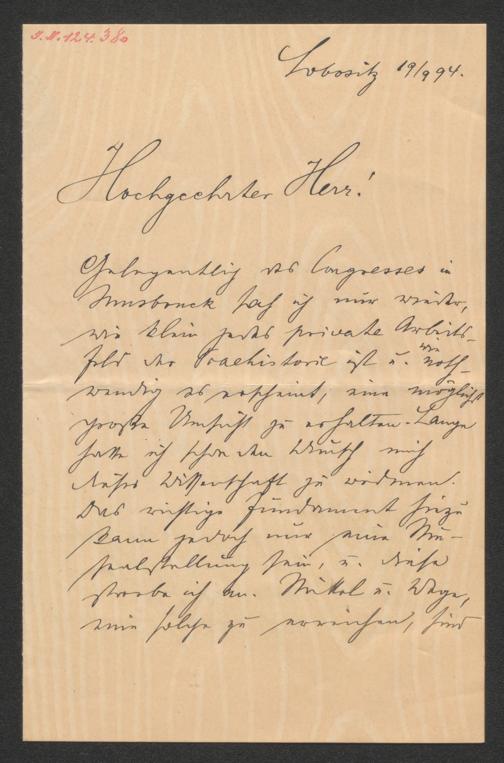 J.N. 124.380
Lobositz 19/9 94.
Hochgeehrter Herr!
Gelegentlich des Congresses in
Innsbruck sah ich nur wieder,
wie klein jedes private Arbeits-
feld der Praehistorie ist u. wie noth-
wendig es erscheint, eine möglichst
große Umsicht zu erhalten. Lange
hatte ich schon den Wunsch mich
dieser Wissenschaft zu widmen.
Das richtige Fundament hiezu
kann jedoch nur eine Mu-
sealstellung sein, u. diese
strebe ich an. Mittel u. Wege,
eine solche zu erreichen, sind